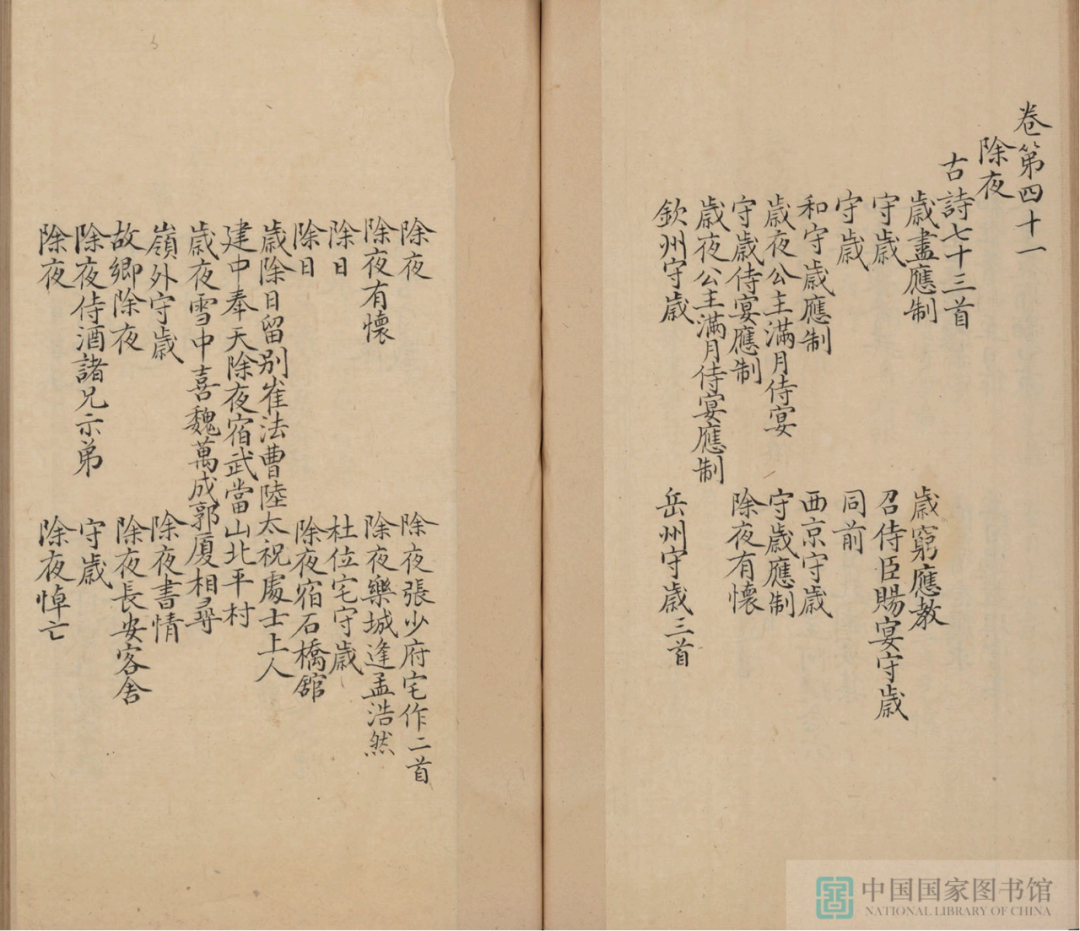 卷第四十一
除夜
古詩七十三首
歲盡應制　歲窮應教
守歲　召侍臣賜宴守歲
守歲　同前
和守歲應制　西京守歲
歲夜公主滿月侍宴　守歲應制
守歲侍宴應制　除夜有懷
歲夜公主滿月侍宴應制
欽州守歲　岳州守歲三首
除夜　除夜張少府宅作二首
除夜有懷　除夜樂城逢孟浩然
除日　杜位宅守歲
除日　除夜宿石橋舘
歲除日留别崔法曹陸太祝處士上人
建中奉天除夜宿武當山北平村
歲夜雪中喜魏萬成郭厦相尋
嶺外守歲　除夜書情
故鄉除夜　除夜長安客舍
除夜侍酒諸兄示弟　守歲
除夜　除夜悼亡
中国国家图书馆
NATIONAL LIBRARY OF CHINA